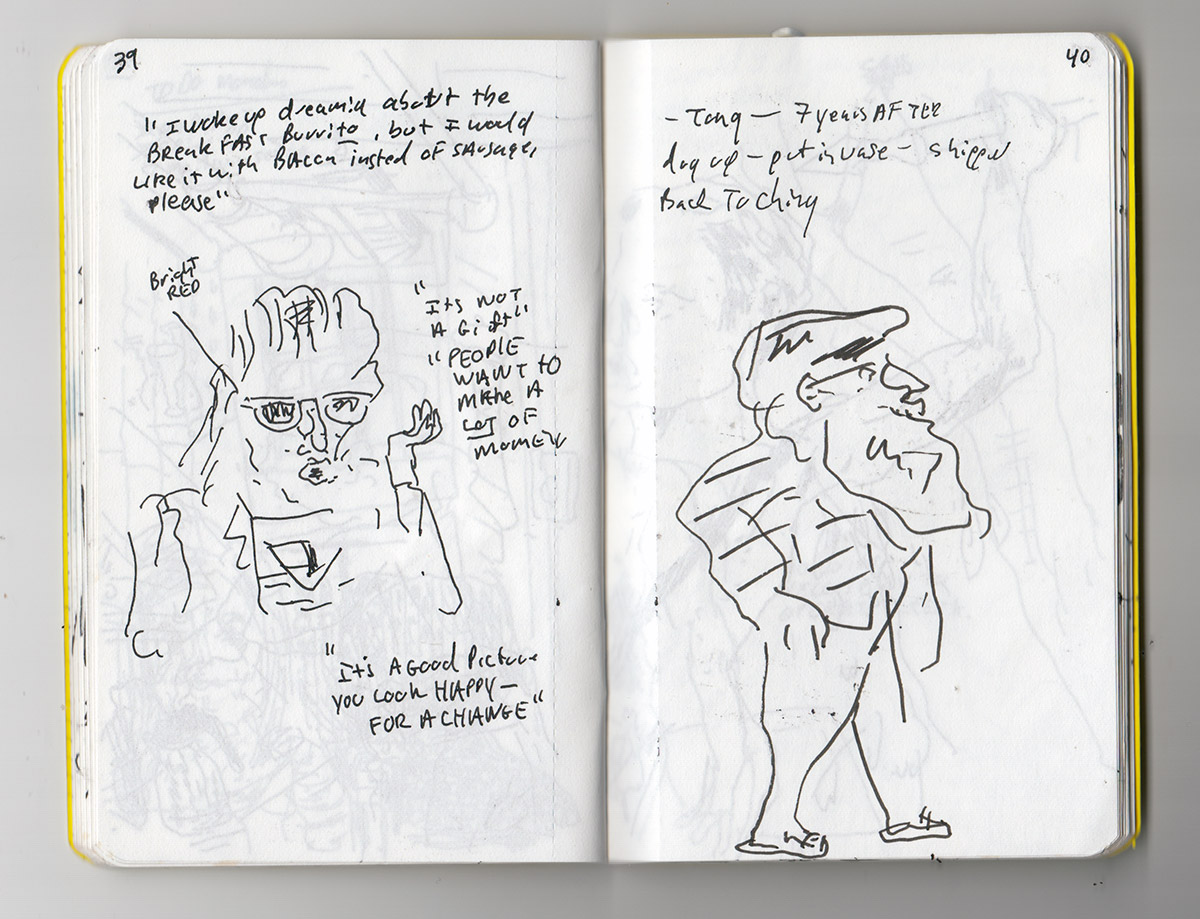 39
"I wake up dreamin about the
BREAKFAST Burrito, but I would
LIKE it with BACON insted OF SAUSAGE,
please"
Bright
RED
"
Its NOT
A Gift"
"PEOPLE
WANT TO
MAKE A
LOT OF
MOMEN
"
It's A Good Picture
YOU Look HAPPY—
FOR A CHANGE"
40
- Tong — 7 years AFTER
dug up — put in vase — shipped
Back To China